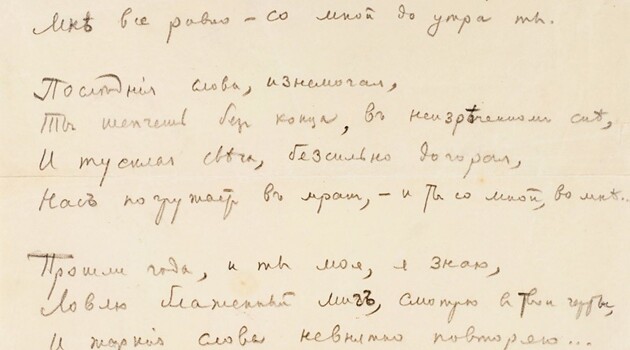 Мнѣ все равно – со мной до утра ты.
Послѣднія слова, изнемогая,
Ты шепчешь безъ конца, въ неизрѣченномъ снѣ,
И тусклая свѣча, безсильно догорая,
Насъ погружаетъ въ мракъ, – и ты со мной, во мнѣ..
Прошли года, и ты моя, я знаю,
Ловлю блаженный мигъ, смотрю въ твои черты,
И жаркія слова невнятно повторяю...